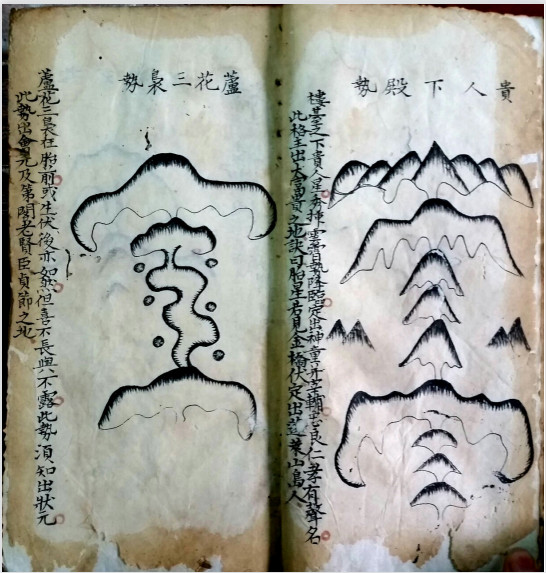 貴人下殿勢
樓臺之下貴人星雲霄勢降臨定出神童并宰輔忠良仁孝有聲名
此格主出大富貴之地訣曰胎星若見金輪伏定出蓬萊山島人
蘆花三裊勢
蘆花三裊在胎前或生伏後亦如然但喜不長與不露此勢須知出狀元
此勢出會元及第閣老賢臣貞節之地